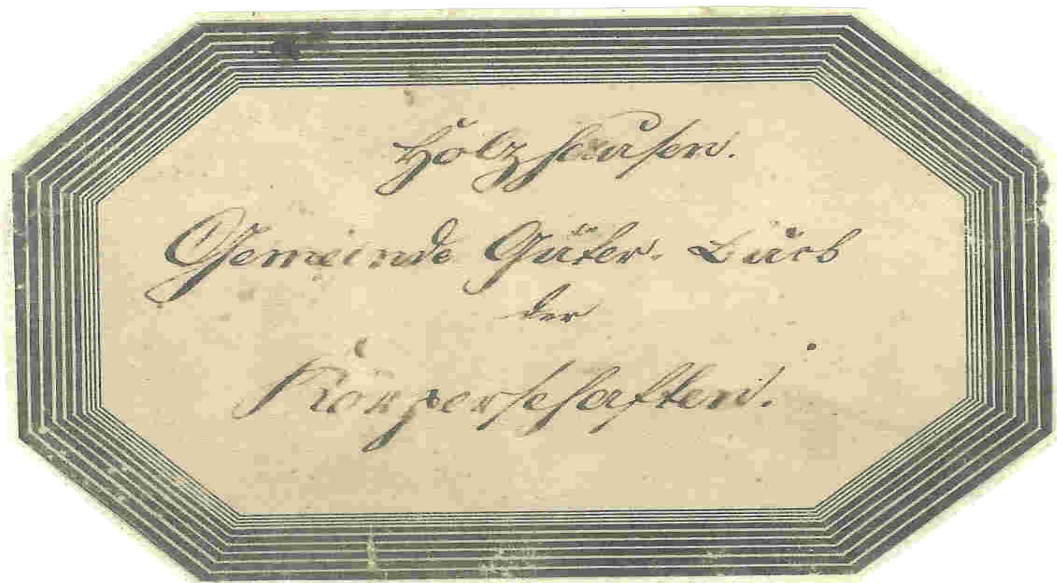 Holzhausen.
Gemeinde Güter-Buch
der
Körperschaften.